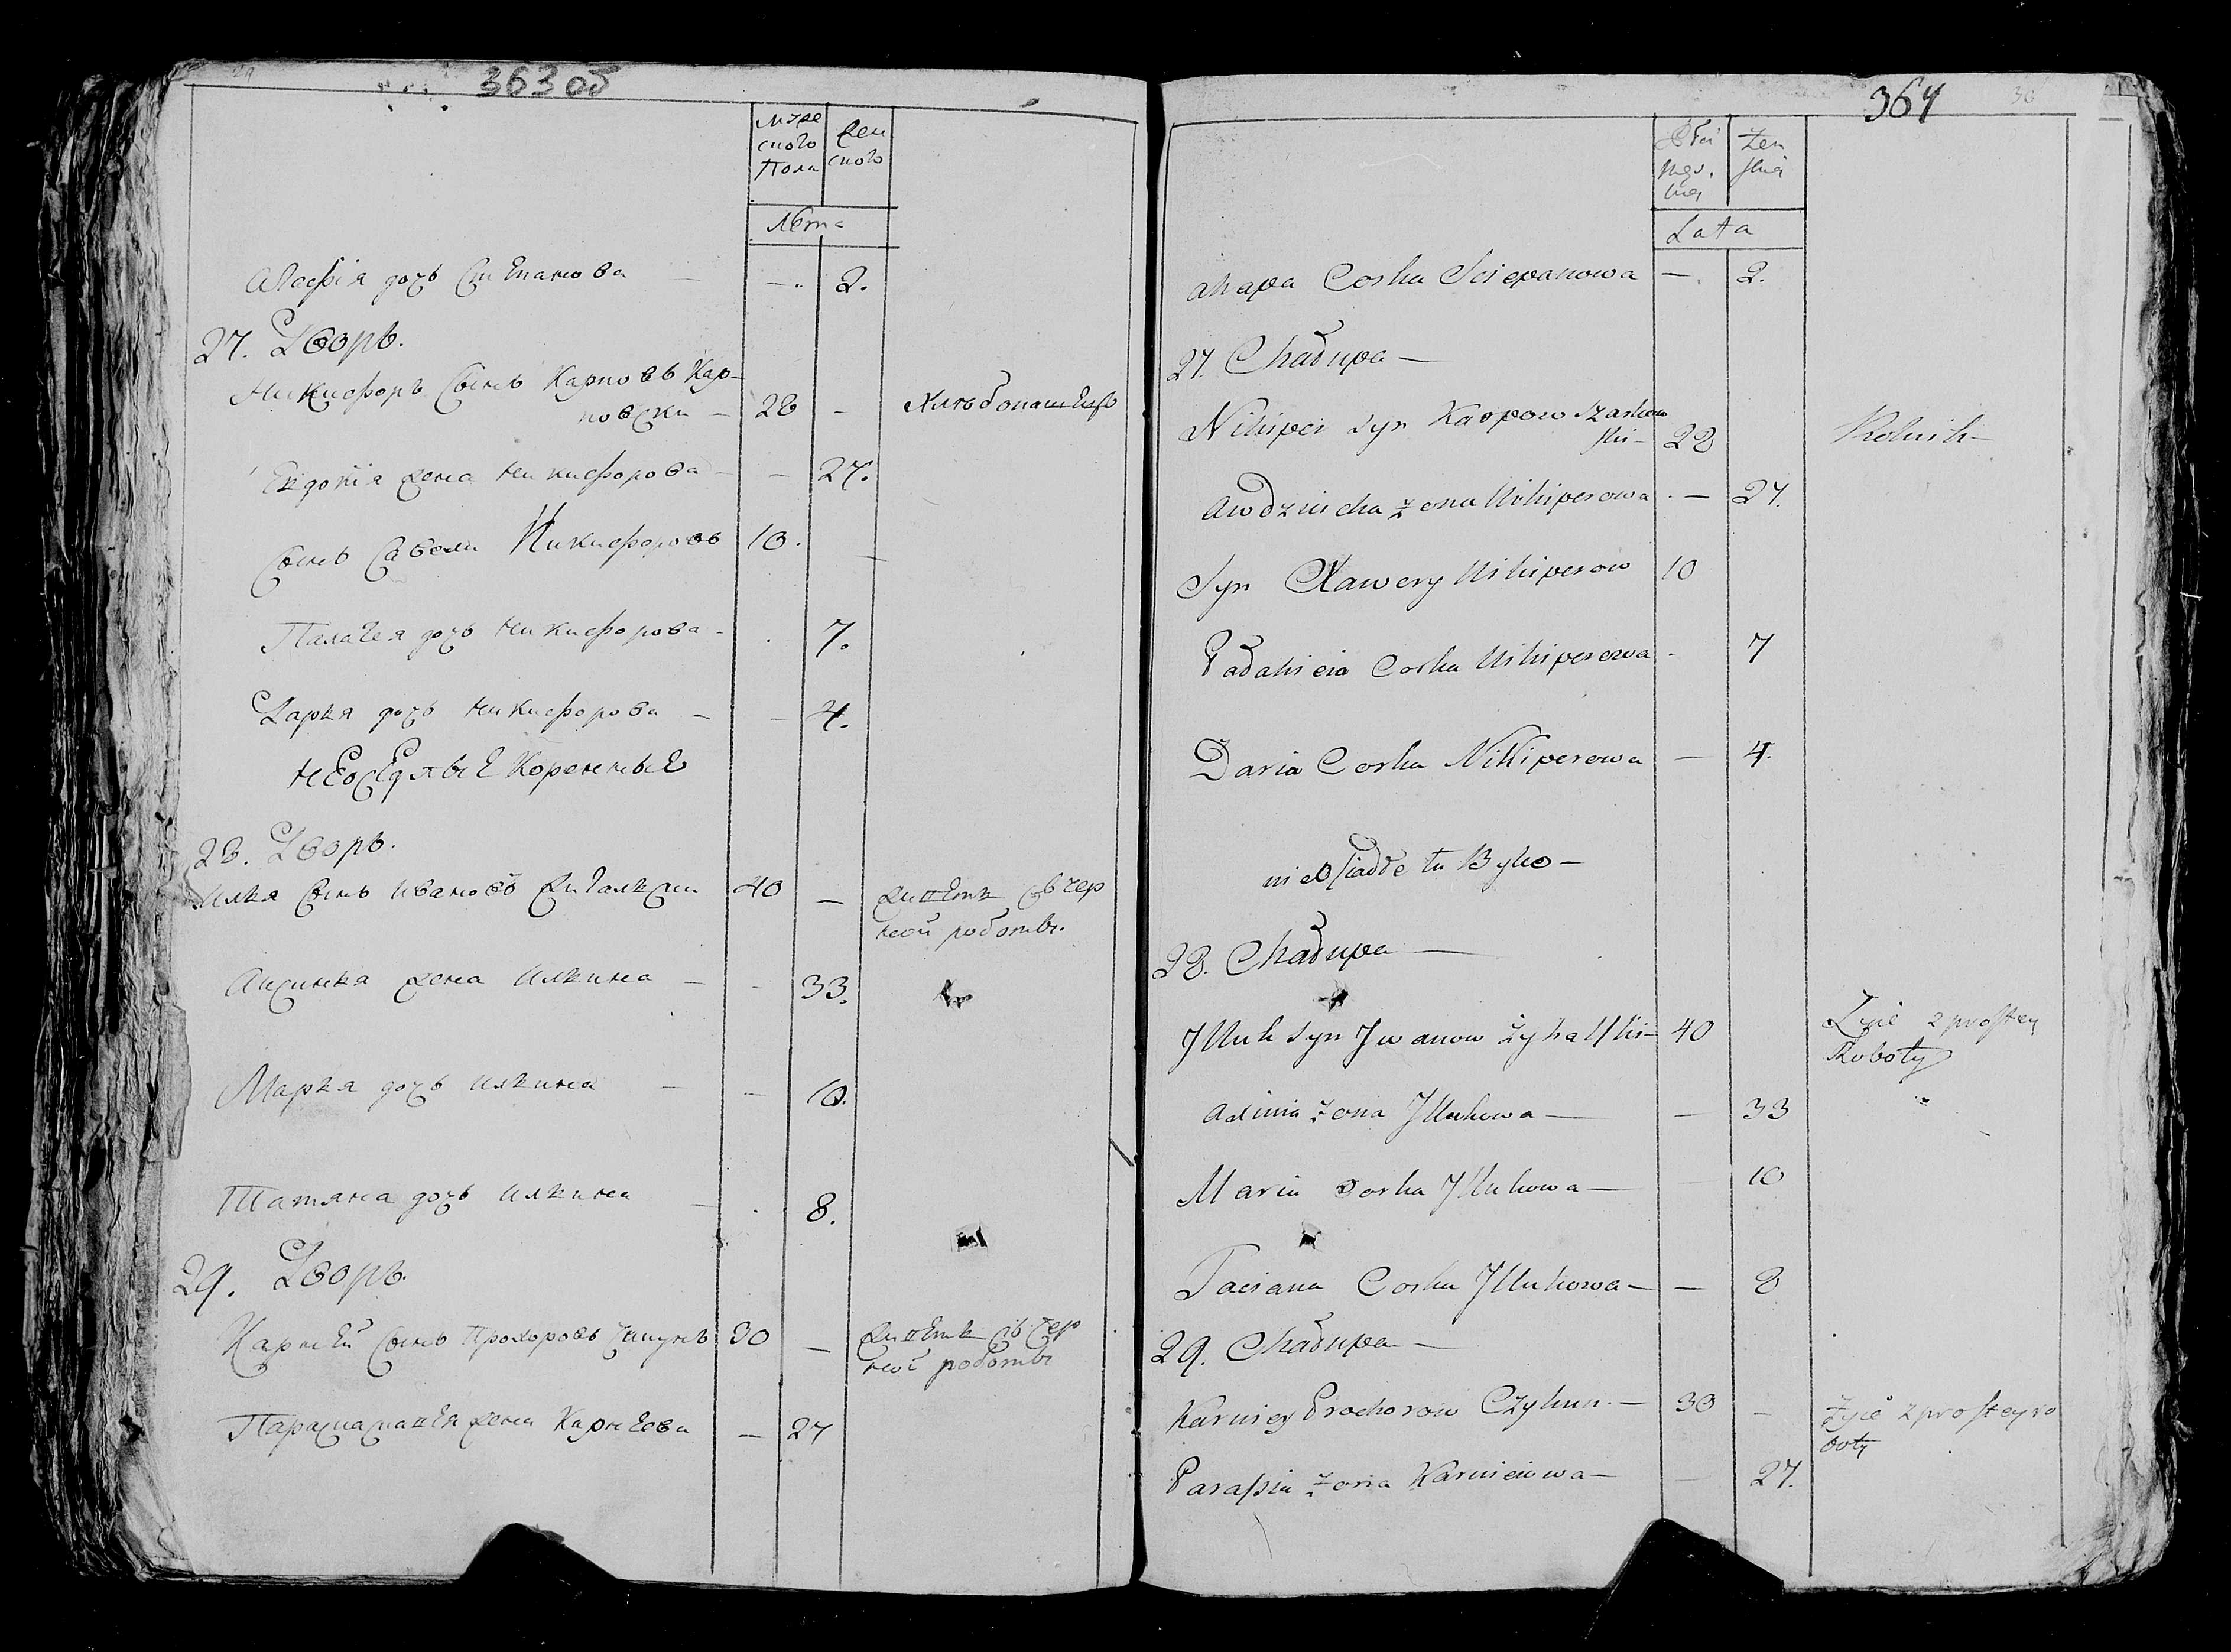 363 об
Муже
ского
Пола
жен
ского
Лета
Агафія дочь Степанова — —. 2.
27. Дворъ.
Никифоръ Сынъ Карповъ Кар-
повски — 28 — Хлѣбопашецъ
Евдокія жена Никифорова — — 27.
Сынъ Савели Никифоровъ 10. —
Палагея дочь Никифорова - . 7.
Дарья дочь Никифорова — — 4.
НЕоСЕдлыЕ КоренныЕ
28. Дворъ.
Илья Сынъ Ивановъ Жигалски 40 — живетъ съ чер
ной роботы.
Аксинья жена Ильина — - 33.
Марья дочь Ильина — — 10.
Татяна дочь Ильина — . 8.
29. Дворъ.
Карней Сынъ Прохоровъ 30 — живетъ съ чер
ной роботы
жена Карнеева — 27
364
Płci
męz.
kiej
Żen
skiej
Lata
Ahapa Corka Sciepanowa — 2.
27. Chałupa —
Nikiper syn Karpow
ski — 28 Rolnik —
Awdziucha żona Nikiperowa . — 27.
Syn Xawery Nikiperow 10
Pałahieia Corka Nikiperowa . 7
Daria Corka Nikiperowa — 4.
nieOsiadłe tu Byłe —
28. Chałupa —
Illuk syn Jwanow Żyhalski — 40 Żyie z prostey
Roboty
Axinia żona Illukowa — — 33
Maria Corka Illukowa — — 10
Taciana Corka Illukowa — — 8
29. Chałupa —
Karniey Prochorow Czyhun — 30 — Żyie z prostey ro
boty
Parasia żona Karnieiowa — — 27.